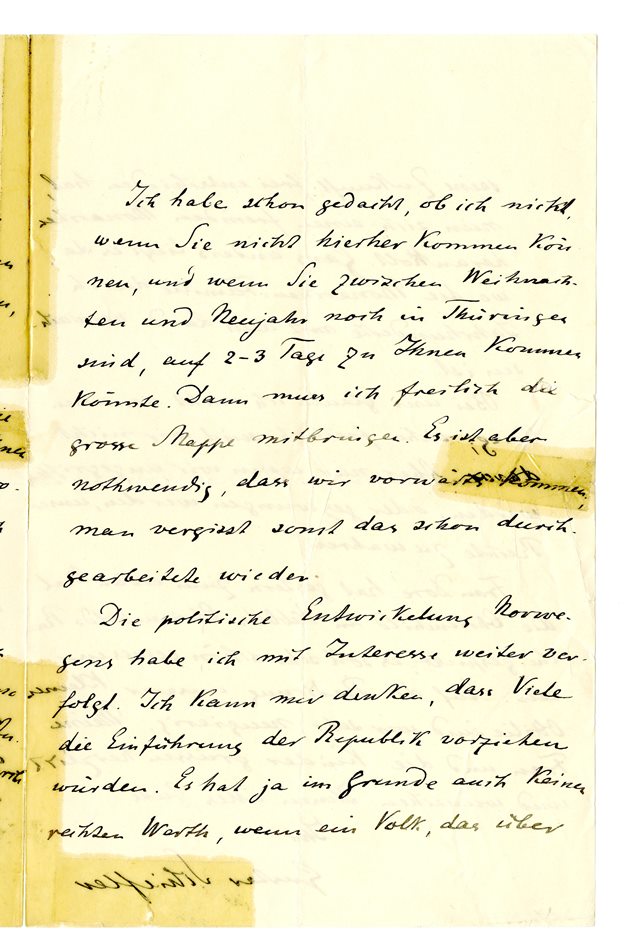 Ich habe schon gedacht, ob ich nicht,
wenn Sie nicht hierher kommen kön
nen, und wenn Sie zwischen Weihnach-
ten und Neujahr noch in Thüringen
sind, auf 2-3 Tage zu Ihnen kommen
könnte. Dann muss ich freilich die
grosse Mappe mitbringen. Es ist aber
nothwendig, dass wir vorwärts kommen,
man vergisst sonst das schon durch-
gearbeitete wieder
Die politische Entwickelung Norwe-
gens habe ich mit Interesse weiter ver-
folgt. Ich kann mir denken, dass Viele
die Einführung der Republik vorziehen
würden. Es hat ja im Grunde auch keinen
rechten Werth, wenn ein Volk, das über